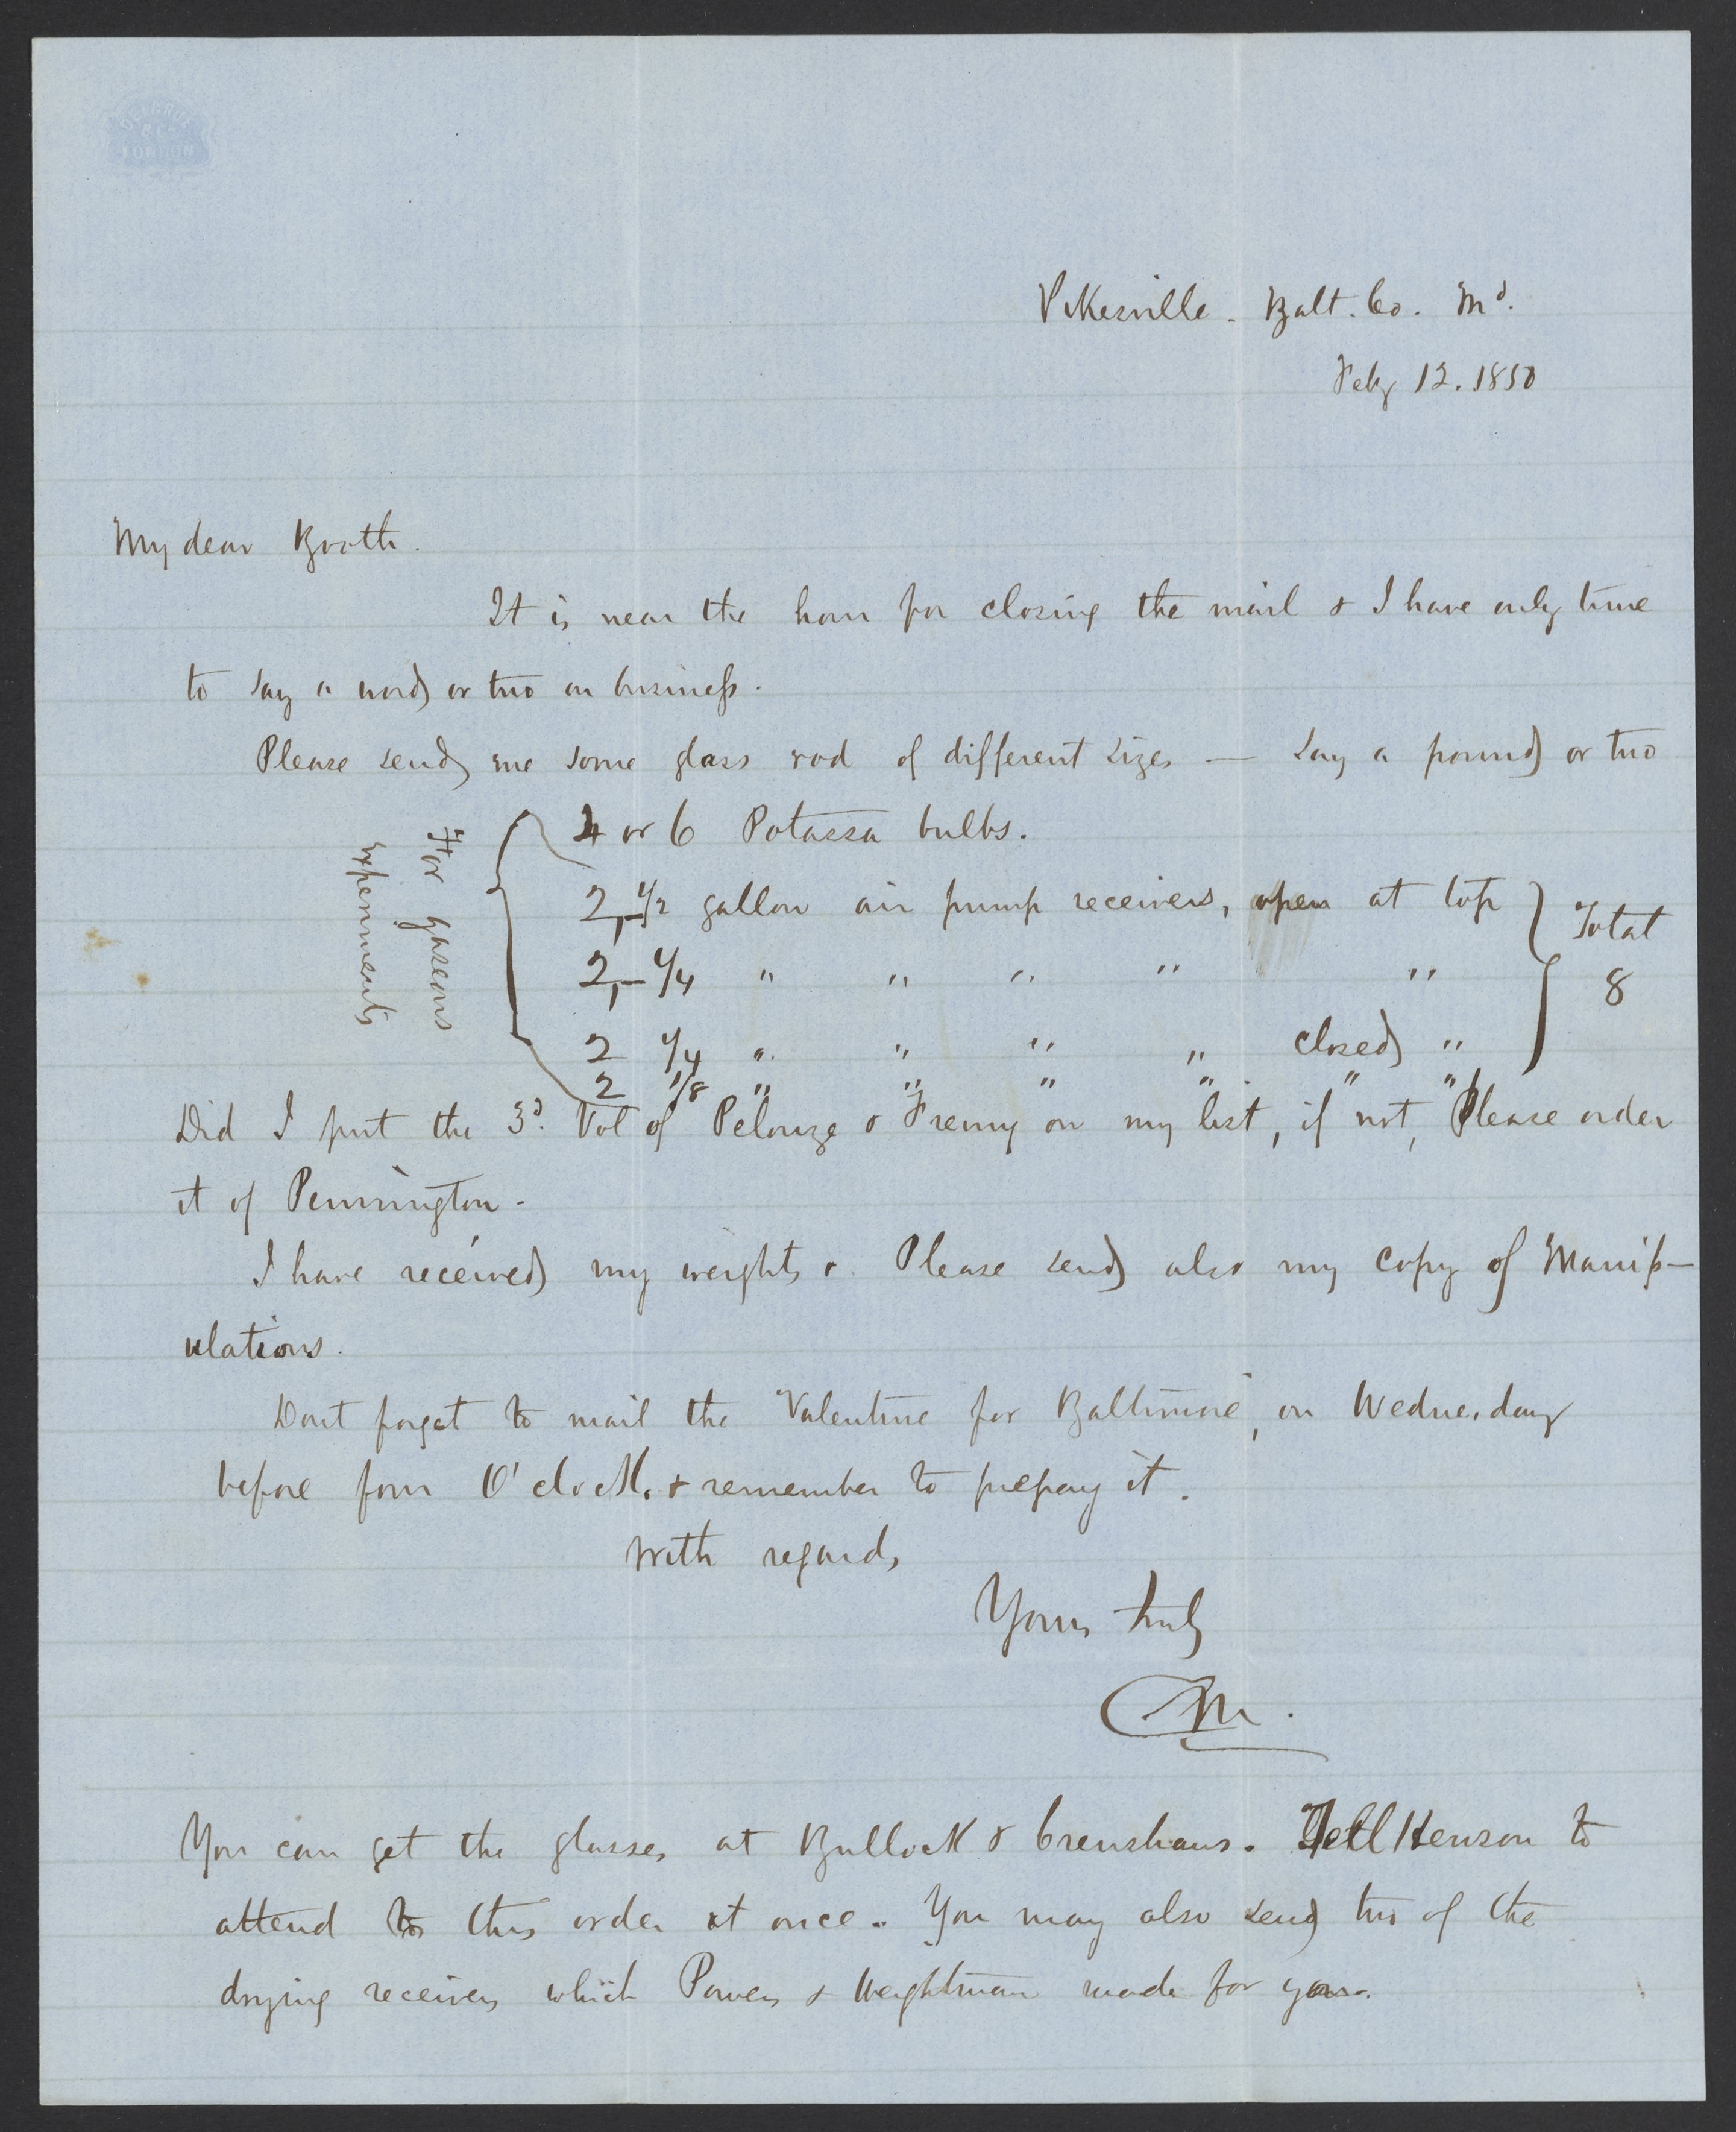 Pikesville - Balt. Co. Md.
Feby 12. 1850
My dear Booth.
It is near the hour for closing the mail & I have only time
to say a word or two on business.
Please send me some glass rod of different sizes — say a pound or two
For gaseous
experiments
4 or 6 Potassa bulbs.
2,–1/2 gallon air pump receivers, open at top
2,–1/4 " " " " "
2 1/4 " " " " closed "
2 1/8 " " " " " "
Total
8
Did I put the 3d. Vol of Pelouze & Fremy on my list, if not, Please order
it of Pennington -
I have received my weights &. Please send also my copy of Manip–
ulations.
Dont forget to mail the Valentine for Baltimore, on Wednesday
before four O'clock. & remember to prepay it.
With regards
Yours truly
CM.
You can get the glasses at Bullock & Crenshaws. Tell Henson to
attend to this order at once. You may also send two of the
drying receivers which Powers & Weightman made for you.